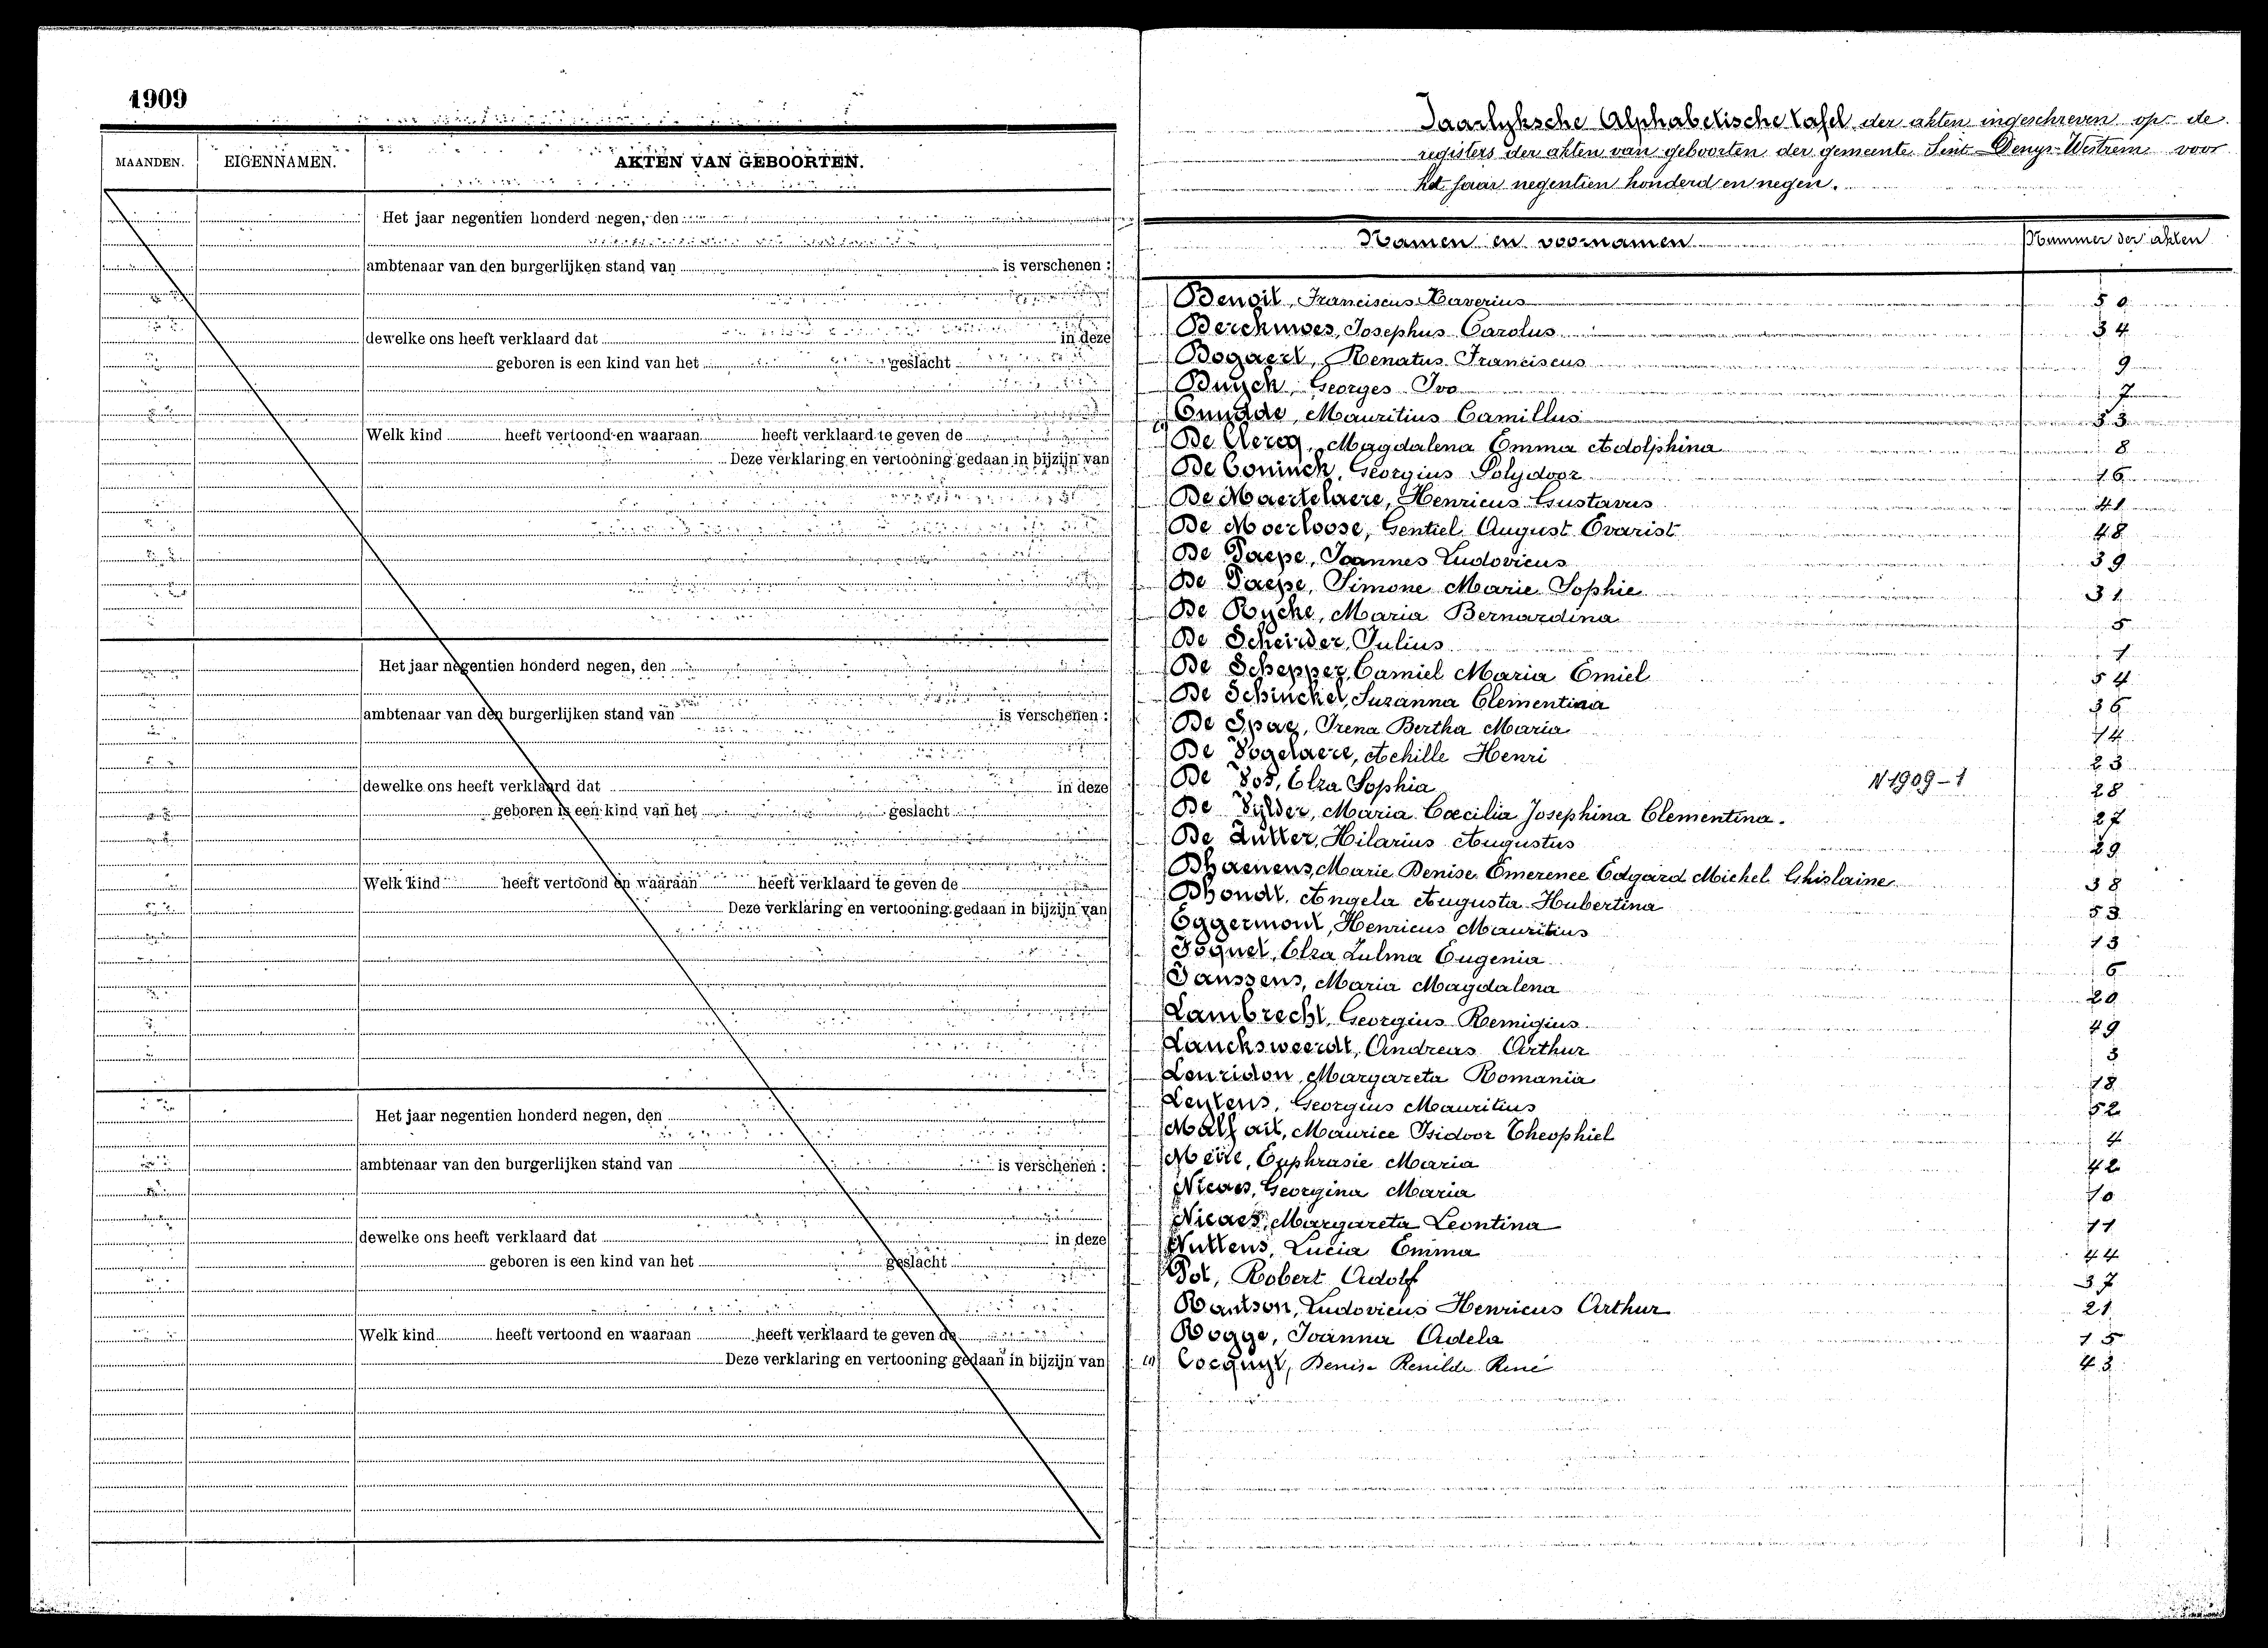 1909
MAANDEN. EIGENNAMEN. AKTEN VAN GEBOORTEN.
Het jaar negentien honderd negen, den
ambtenaar van den burgerlijken stand van is verschenen :
dewelke ons heeft verklaard dat in deze
geboren is een kind van het geslacht
Welk kind heeft vertoond en waaraan heeft verklaard te geven de
Deze verklaring en vertooning gedaan in bijzijn van
Het jaar negentien honderd negen, den
ambtenaar van den burgerlijken stand van is verschenen :
dewelke ons heeft verklaard dat in deze
geboren is een kind van het geslacht
Welk kind heeft vertoond en waaraan heeft verklaard te geven de
Deze verklaring en vertooning gedaan in bijzijn van
Het jaar negentien honderd negen, den
ambtenaar van den burgerlijken stand van is verschenen :
dewelke ons heeft verklaard dat in deze
geboren is een kind van het geslacht
Welk kind heeft vertoond en waaraan heeft verklaard te geven de
Deze verklaring en vertooning gedaan in bijzijn van
Jaarlyksche Alphabetische tafel der akten ingeschreven op de
registers der akten van geboorten der gemeente Sint Denys-Westrem voor
het jaar negentien honderd en negen.
Namen en voornamen Nummer der akten
Benoit, Franciscus Xaverius 50
Berckmoes, Josephus Carolus 34
Bogaert, Renatus Franciscus 9
Buysch, Georges Ivo 7
Mauritius Camillus
De Clercq, Magdalena Emma Adolphina 8
De Coninck, Georgius Polydoor 16
De Maertelaere, Henricus Gustavus 41
De Moerloose, Gentiel August Evarist 48
De Paepe, Joannes Ludovicus 39
De Paepe, Simone Marie Sophie 31
De Rycke, Maria Bernardina 5
De Scheirder, Julius 1
De Schepper, Camiel Maria Emiel 54
De Schinckel, Suzanna Clementina 36
De Spae, Irena Bertha Maria 14
De Vogelaere, Achille Henri 23
De Vos, Elza Sophia N 1909-1 28
De Vylder, Maria Cæcilia Josephina Clementina. 27
De Zutter, Hilarius Augustus 29
Dhaenens, Marie Denise Emerence Edgard Michel Ghislaine 38
Dhondt, Angela Augusta Hubertina 53
Eggermont, Henricus Mauritius 13
Foquet, Elza Zulma Eugenia 6
Janssens, Maria Magdalena 20
Lambrecht, Georgius Remigius 49
Lancksweerdt, Andreas Arthur 3
Leuridon, Margareta Romania 18
Leytens, Georgius Mauritius 52
Malfait, Maurice Isidoor Theophiel 4
Meire, Euphrasie Maria 42
Nicaes, Georgina Maria 10
Nicaes, Margareta Leontina 11
Nuttens, Lucia Emma 44
Pot, Robert Adolf 37
Rantson, Ludovicus Henricus Arthur 21
Rogge, Joanna Adela 15
Cocquyt, Denise Renilde René 43